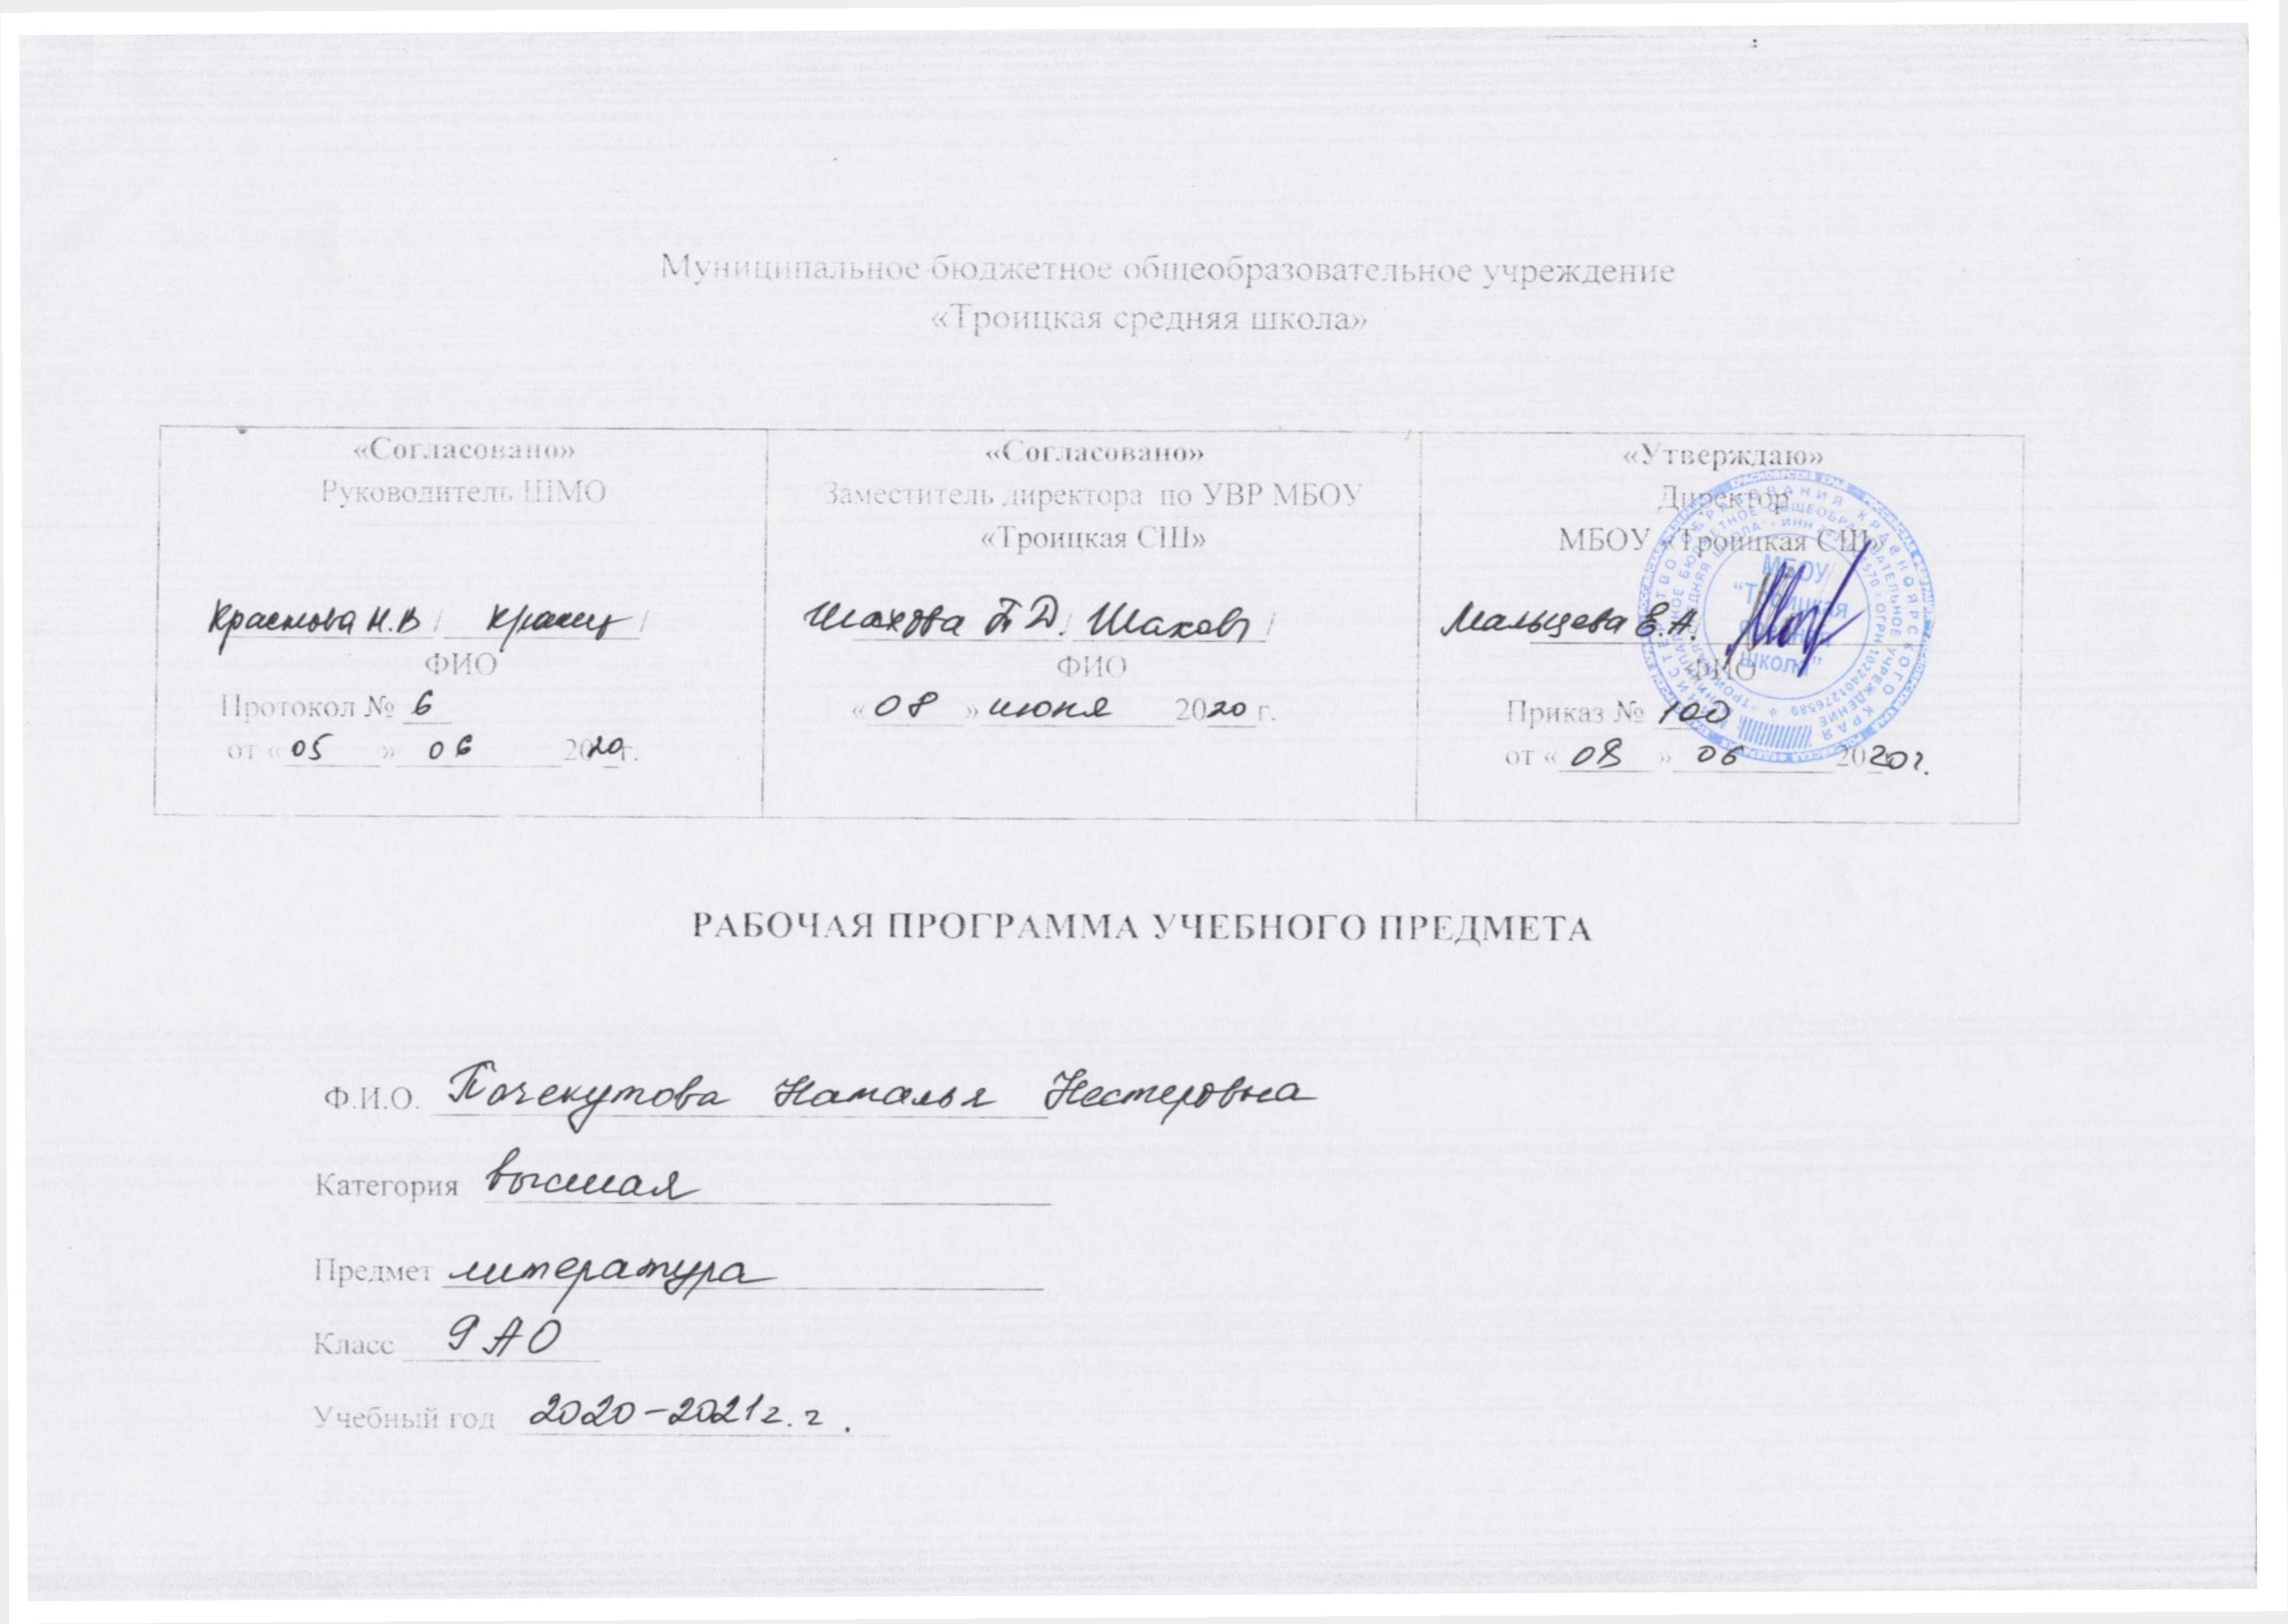 Муниципальное бюджетное общеобразовательное учреждение
«Троицкая средняя школа»
«Согласовано»
Руководитель ШМО
Краснова Н.В / /
ФИО
Протокол № 6
от «05» 06 2020г.
«Согласовано»
Заместитель директора по УВР МБОУ
«Троицкая СШ»
Шахова Т.Д. / Шахов /
ФИО
«08» июня 2020 г.
«Утверждаю»
Директор
МБОУ «Троицкая СШ»
Мальцева Е.А.
ФИО
Приказ № 100
от «08» 06 2020г.
МБОУ
"Троицкая
средняя
школа"
РАБОЧАЯ ПРОГРАММА УЧЕБНОГО ПРЕДМЕТА
Ф.И.О. Почекутова Наталья Нестеровна
Категория высшая
Предмет литература
Класс 9 АО
Учебный год 2020-2021 г. г.